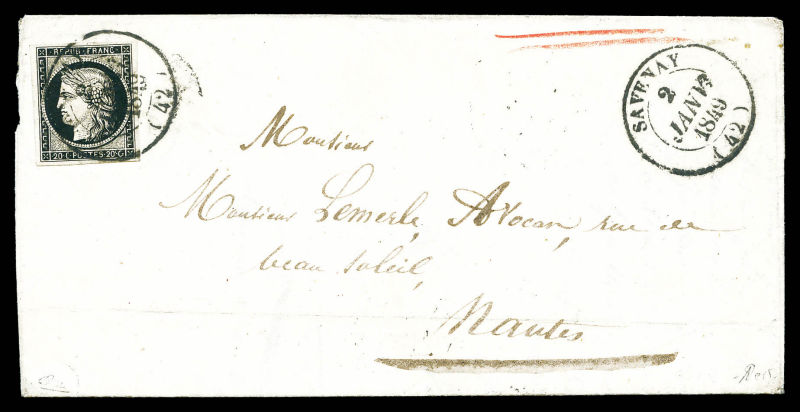 REPUB. FRANC.
20 - C. POSTES. 20 - C
1849
( 42 )
SAVENAY
2
JANV.
1849
( 42 )
Monsieur
Monsieur Lemerle, Avocat, rue de
beau soleil,
Nantes